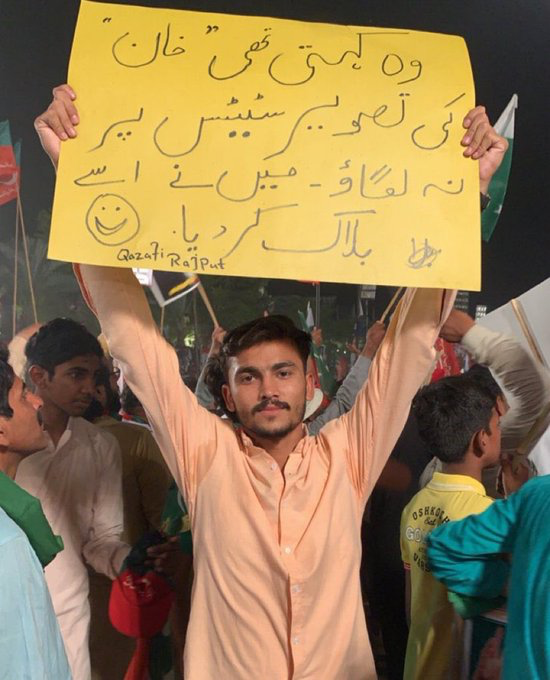 وہ کہتی تھی "خان"
کی تصویر سٹیٹس پر
نہ لگاؤ۔ میں نے اسے
بلاک کر دیا.
Qazafi Rajput
OSHKOSH